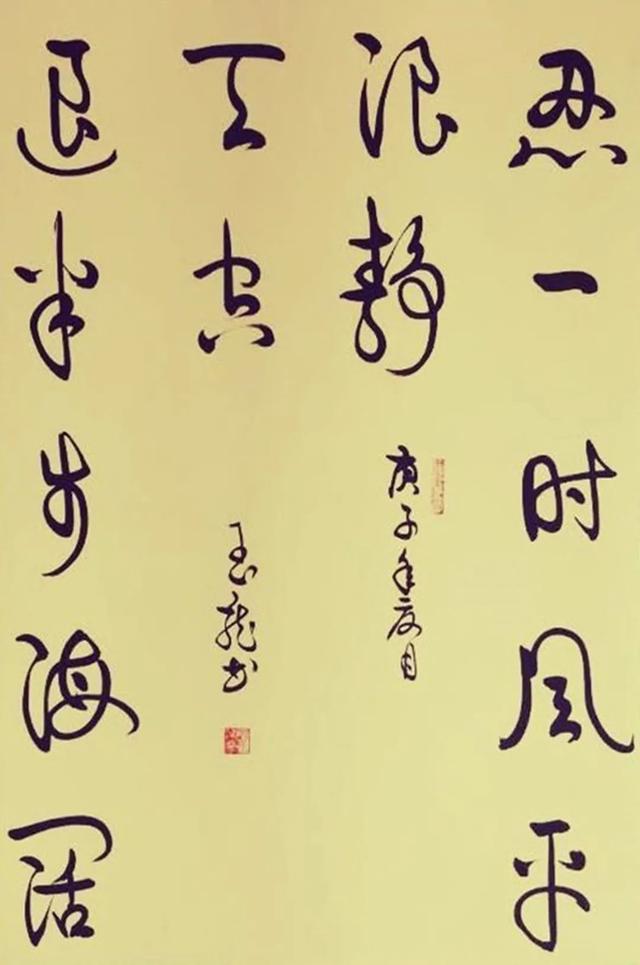 忍一时风平
浪静
退半步海阔
天空
庚子年夏月
玉龙书